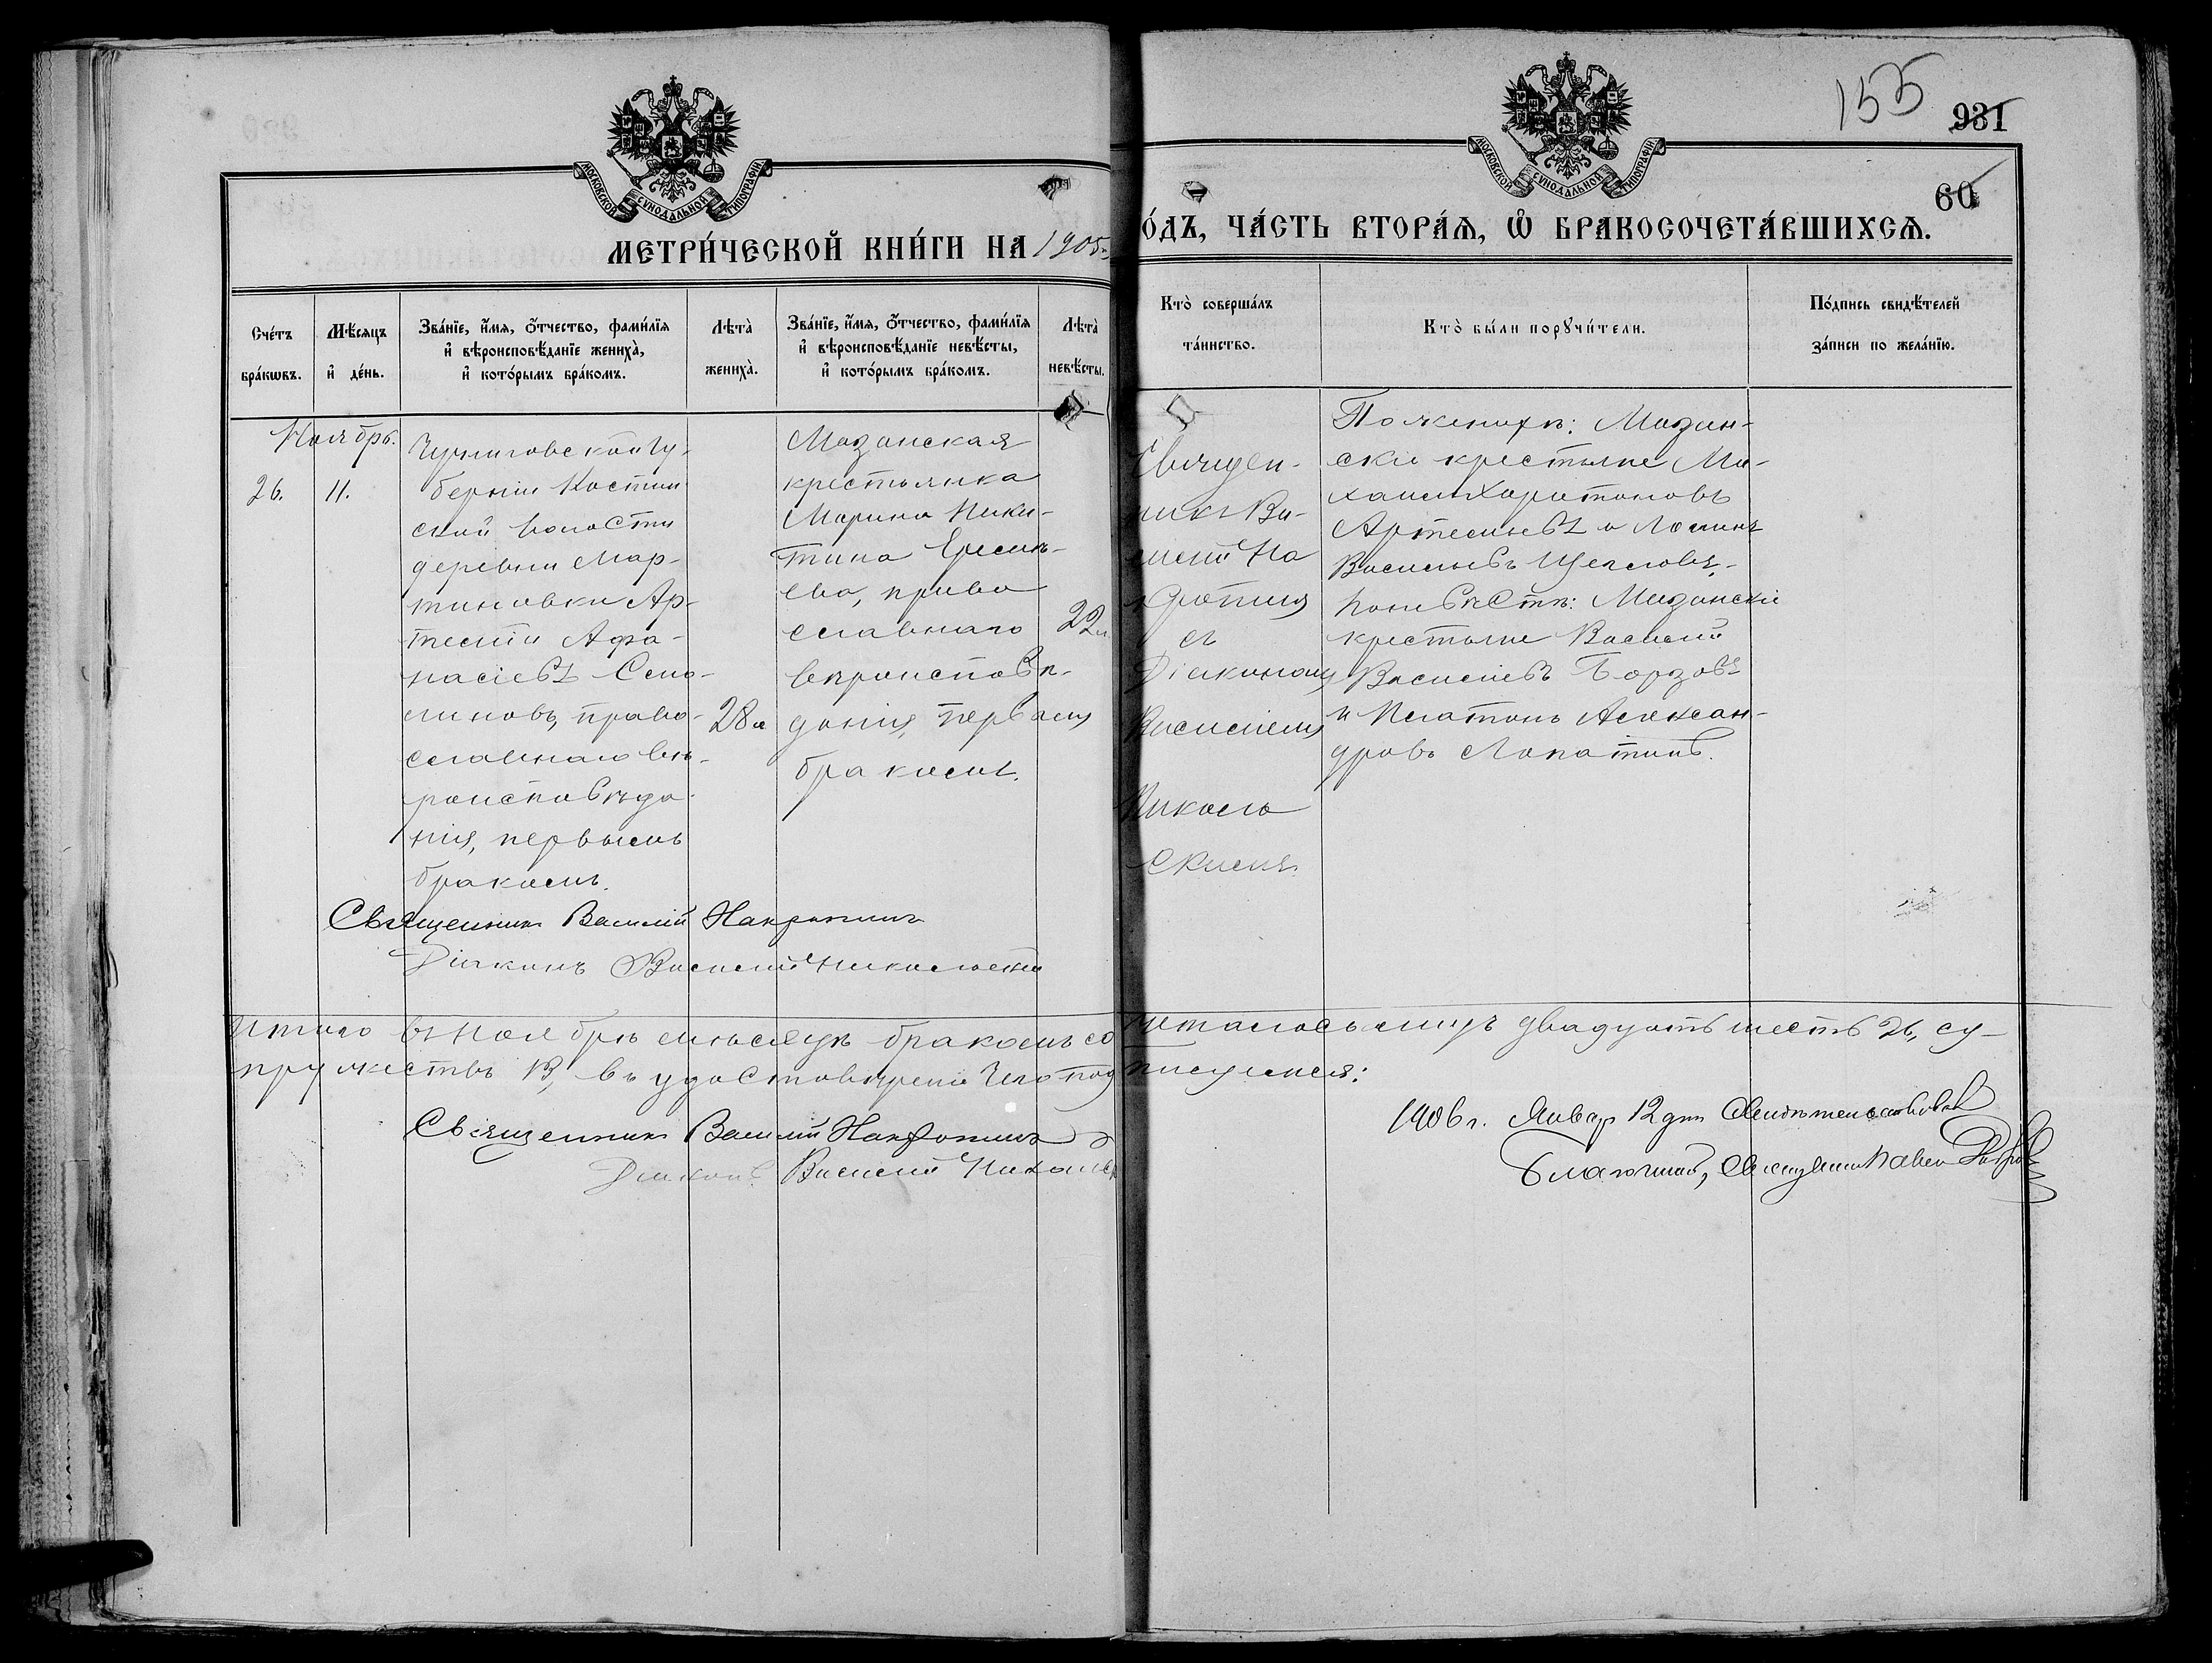 155
931
60
МОСКОВСКОЙ СѴНОДАЛЬНОЙ ТИПОГРАФІИ
МОСКОВСКОЙ СѴНОДАЛЬНОЙ ТИПОГРАФІИ
МЕТРИ́ЧЕСКОЙ КНИ́ГИ НА 1905
О́ДЪ, ЧА́СТЬ ВТОРА́Ѧ, Ѽ БРАКОСОЧЕТА́ВШИХСѦ.
Сче́тъ
бра́кѡвъ.
Мѣ́сѧцъ
и҆ де́нь.
Зва́нїе, и҆́мѧ, ѻ҆́тчество, фами́лїѧ
и҆ вѣроисповѣ́данїе жениха̀,
и҆ кото́рымъ бра́комъ.
Лѣта̀
жениха̀.
Зва́нїе, и҆́мѧ, ѻ҆́тчество, фами́лїѧ
и҆ вѣроисповѣ́данїе невѣ́сты,
и҆ кото́рымъ бра́комъ.
Лѣта̀
невѣ́сты.
Кто̀ соверша́лъ
та́инство.
Кто̀ бы́ли порꙋчи́тели.
По́дпись свидѣ́телей
за́писи по жела́нїю.
Ноябрь.
26.
11.
Черниговской гу-
берніи Костин
ской волости
деревни Мар-
тиновки Ар-
темій Афа-
насіевъ Само-
линовъ, право-
славнаго вѣ-
роисповѣда-
нія, первымъ
бракомъ.
28
Мазанская
крестьянка
Марина Ники-
тина Еремѣ-
ева, право
славнаго
вѣроисповѣ-
данія, первымъ
бракомъ.
22
Священ-
никъ Ва-
силій На
кропинъ
съ
Діакономъ
Василіемъ
Николь
скимъ
По женихѣ: Мазан-
скіе крестьяне Ми-
хаилъ Харитоновъ
Артемьевъ и Логинъ
Васильевъ Щегловъ,-
по невѣстѣ: Мазанскіе
крестьяне Василій
Василіевъ Борзовъ
и Платонъ Алексан-
дровъ Лопатинъ.
Священникъ Василій Накропинъ
Діаконъ Василій Никольскій
Итого въ ноябрѣ мѣсяцѣ бракомъ сочеталось лицъ двадцать шесть 26, су-
пружествъ 13, въ удостовѣреніе чего подписуемся:
Священникъ Василій Накропинъ
Діаконъ Василій Никольск
1906 г. Январ 12 дня Свидѣтельствовалъ
Благочинный, Священникъ Павелъ